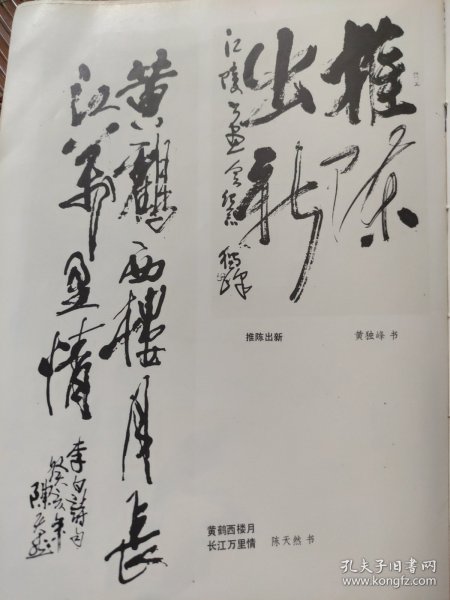 推陈
出新
江陵
独峰
推陈出新 黄独峰 书
黄鹤西楼月长
江万里情
李白诗句
癸亥年
陈天然
黄鹤西楼月
长江万里情 陈天然 书
孔夫子旧书网
www.kongfz.com